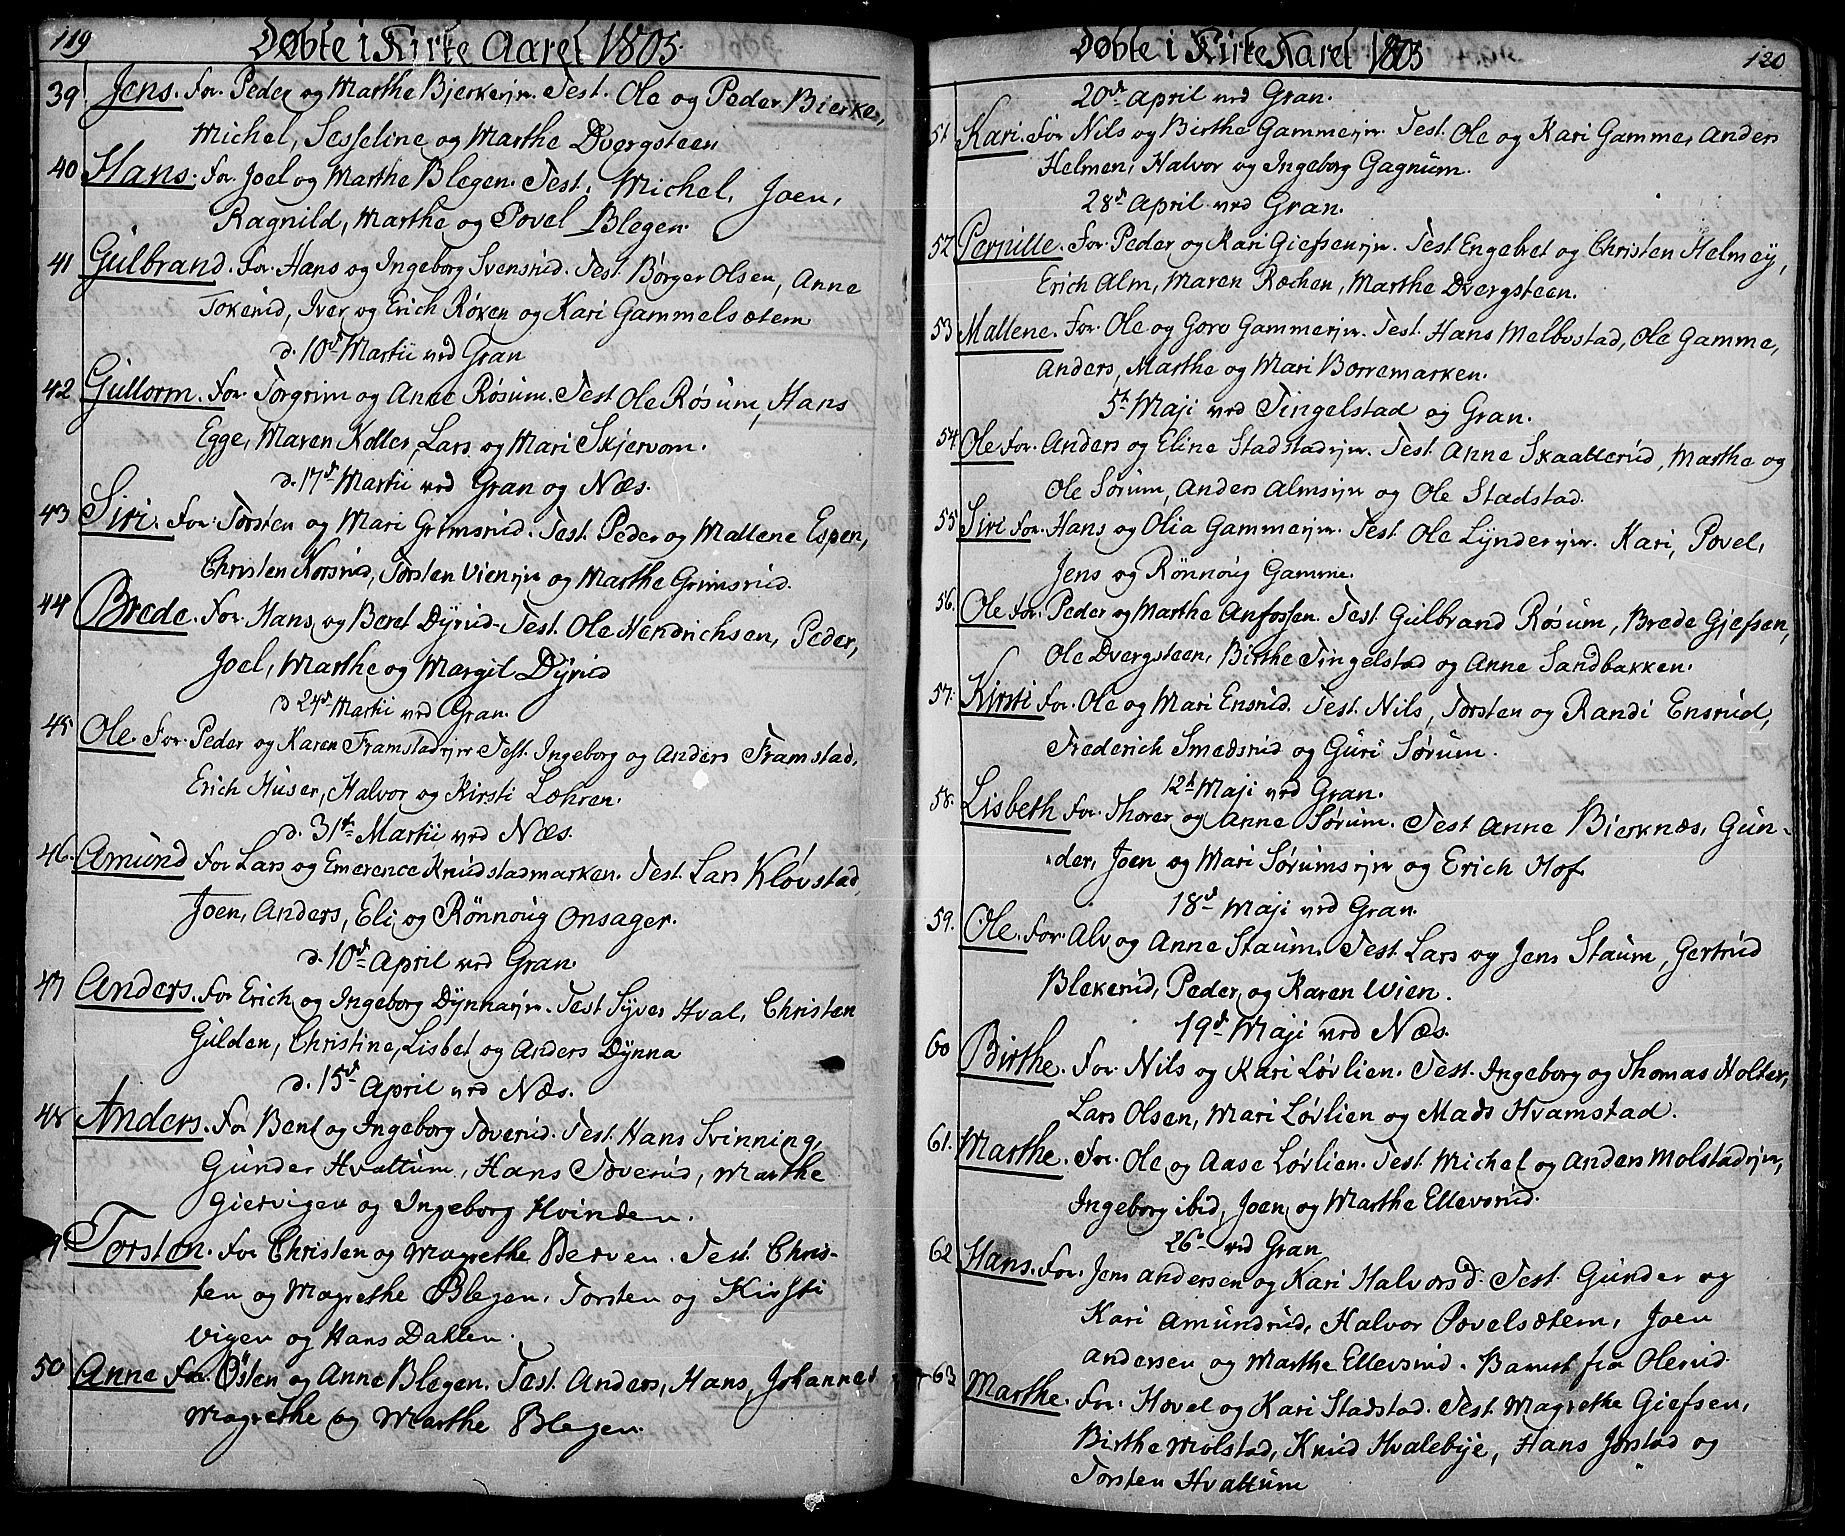 119
Døbte i Kirke Aaret 1805.
39 Jens. For. Peder og Marthe Bjerkeyr. Test. Ole og Peder Bierke,
Michel, Sesseline og Marthe Dvergsteen
40 Hans. For. Joel og Marthe Blegen. Test. Michel, Joen,
Ragnild, Marthe og Povel Blegen.
41 Gulbrand. For. Hans og Ingeborg Svensrud. Test. Børger Olsen, Anne
Tokerud, Iver og Erich Røken og Kari Gammelsætem
d. 10d Martii ved Gran
42 Gullorm. For. Torgrim og Anne Røsum. Test Ole Røsum, Hans
Egge, Maren Koller, Lars og Mari Skjervom.
d. 17d Martii ved Gran og Næs.
43 Siri. For. Torsten og Mari Grimsrud. Test. Peder og Mallene Espen,
Christen Korsrud, Torsten Vienejer og Marthe Grimsrud.
44 Brede. For. Hans og Beret Dyrud. Test. Ole Hendrichsen, Peder,
Joel, Marthe og Margit Dyrud
d 24d Martii ved Gran.
45 Ole. For. Peder og Karen Framstadejer Test. Ingeborg og Anders Framstad,
Erich Huser, Halvor og Kirsti Læhren.
d. 31te Martii ved Næs.
46. Amund For Lars og Emerence Knudstadmarken. Test. Lars Kløvstad,
Joen, Anders, Eli og Rönnoug Onsager.
d. 10d April ved Gran.
47 Anders. For Erich og Ingeborg Dynnaejr. Test Syver Hval, Christen
Gulden, Christine, Lisbet og Anders Dynna
d. 15d April ved Næs.
48 Anders. For Bent og Ingeborg Toverud. Test. Hans Svinning,
Gunder Hvattum, Hans Toverud, Marthe
Giervigen og Ingeborg Hvinden.
9 Torsten. For Christen og Magrethe Berven. Test. Chris-
ten og Magrethe Blegen, Torsten og Kirsti
Vigen og Hans Dahlen.
50 Anne For. Østen og Anne Blegen. Test. Anders, Hans, Johannes
Magrethe og Marthe Blegen.
Døbte i Kirke Aaret 1805
120
20de April ved Gran.
51 Kari. For Nils og Birthe Gammeejr. Test. Ole og Kari Gamme, Anders
Helmen, Halvor og Ingeborg Gagnum.
28d April ved Gran.
52 Pernille. For. Peder og Kari Giefsenejr. Test Engebret og Christen Helmey,
Erich Alm, Maren Ræchen, Marthe Dvergsteen.
53 Mallene. For. Ole og Goro Gammeejr. Test. Hans Melbostad, Ole Gamme,
Anders, Marthe og Mari Borremarken.
5te Maji ved Tingelstad og Gran.
54 Ole For. Anders og Eline Stadstadejr. Test. Anne Skaatterud, Marthe og
Ole Sørum, Anders Almsejr og Ole Stadstad.
55 Siri For. Hans og Olia Gammeejr. Test Ole Lynderejr. Kari, Povel,
Jens og Rönnoug Gamme.
56. Ole For. Peder og Marthe Anfossen. Test. Gulbrand Røsum, Brede Gjefsen,
Ole Dvergsteen, Birthe Tingelstad og Anne Sandbakken.
57. Kirsti For. Ole og Mari Ensrud. Test. Nils, Torsten og Randi Ensrud,
Frederich Smedsrud og Guri Sørum.
12te Maji ved Gran.
58. Lisbeth For. Thorer og Anne Sørum. Test Anne Bierknæs, Gun-
der, Joen og Mari Sørumsejr og Erich Hof.
18d Maji ved Gran.
59. Ole. For. Alv og Anne Staum. Test Lars og Jens Staum, Gertrud
Blekerud, Peder og Karen Wien.
19d Maji ved Næs.
60 Birthe. For. Nils og Kari Løvlien. Test. Ingeborg og Thomas Holter,
Lars Olsen, Mari Løvlien og Mads Hvamstad.
61. Marthe. For. Ole og Aase Løvlien. Test. Michel og Anders Molstadejr,
Ingeborg ibid, Joen og Marthe Ellevsrud.
26d ved Gran
62 Hans. For. Jens Andersen og Kari Halvorsd. Test. Gunder og
Kari Amundrud, Halvor Povelsætem, Joen
Andersen og Marthe Ellevsrud. Barnet fra Olerud.
63. Marthe. For. Hovel og Kari Stadstad. Test. Magrethe Giefsen,
Birthe Molstad, Knud Hvalebye, Hans Jorstad og
Torsten Hvattum